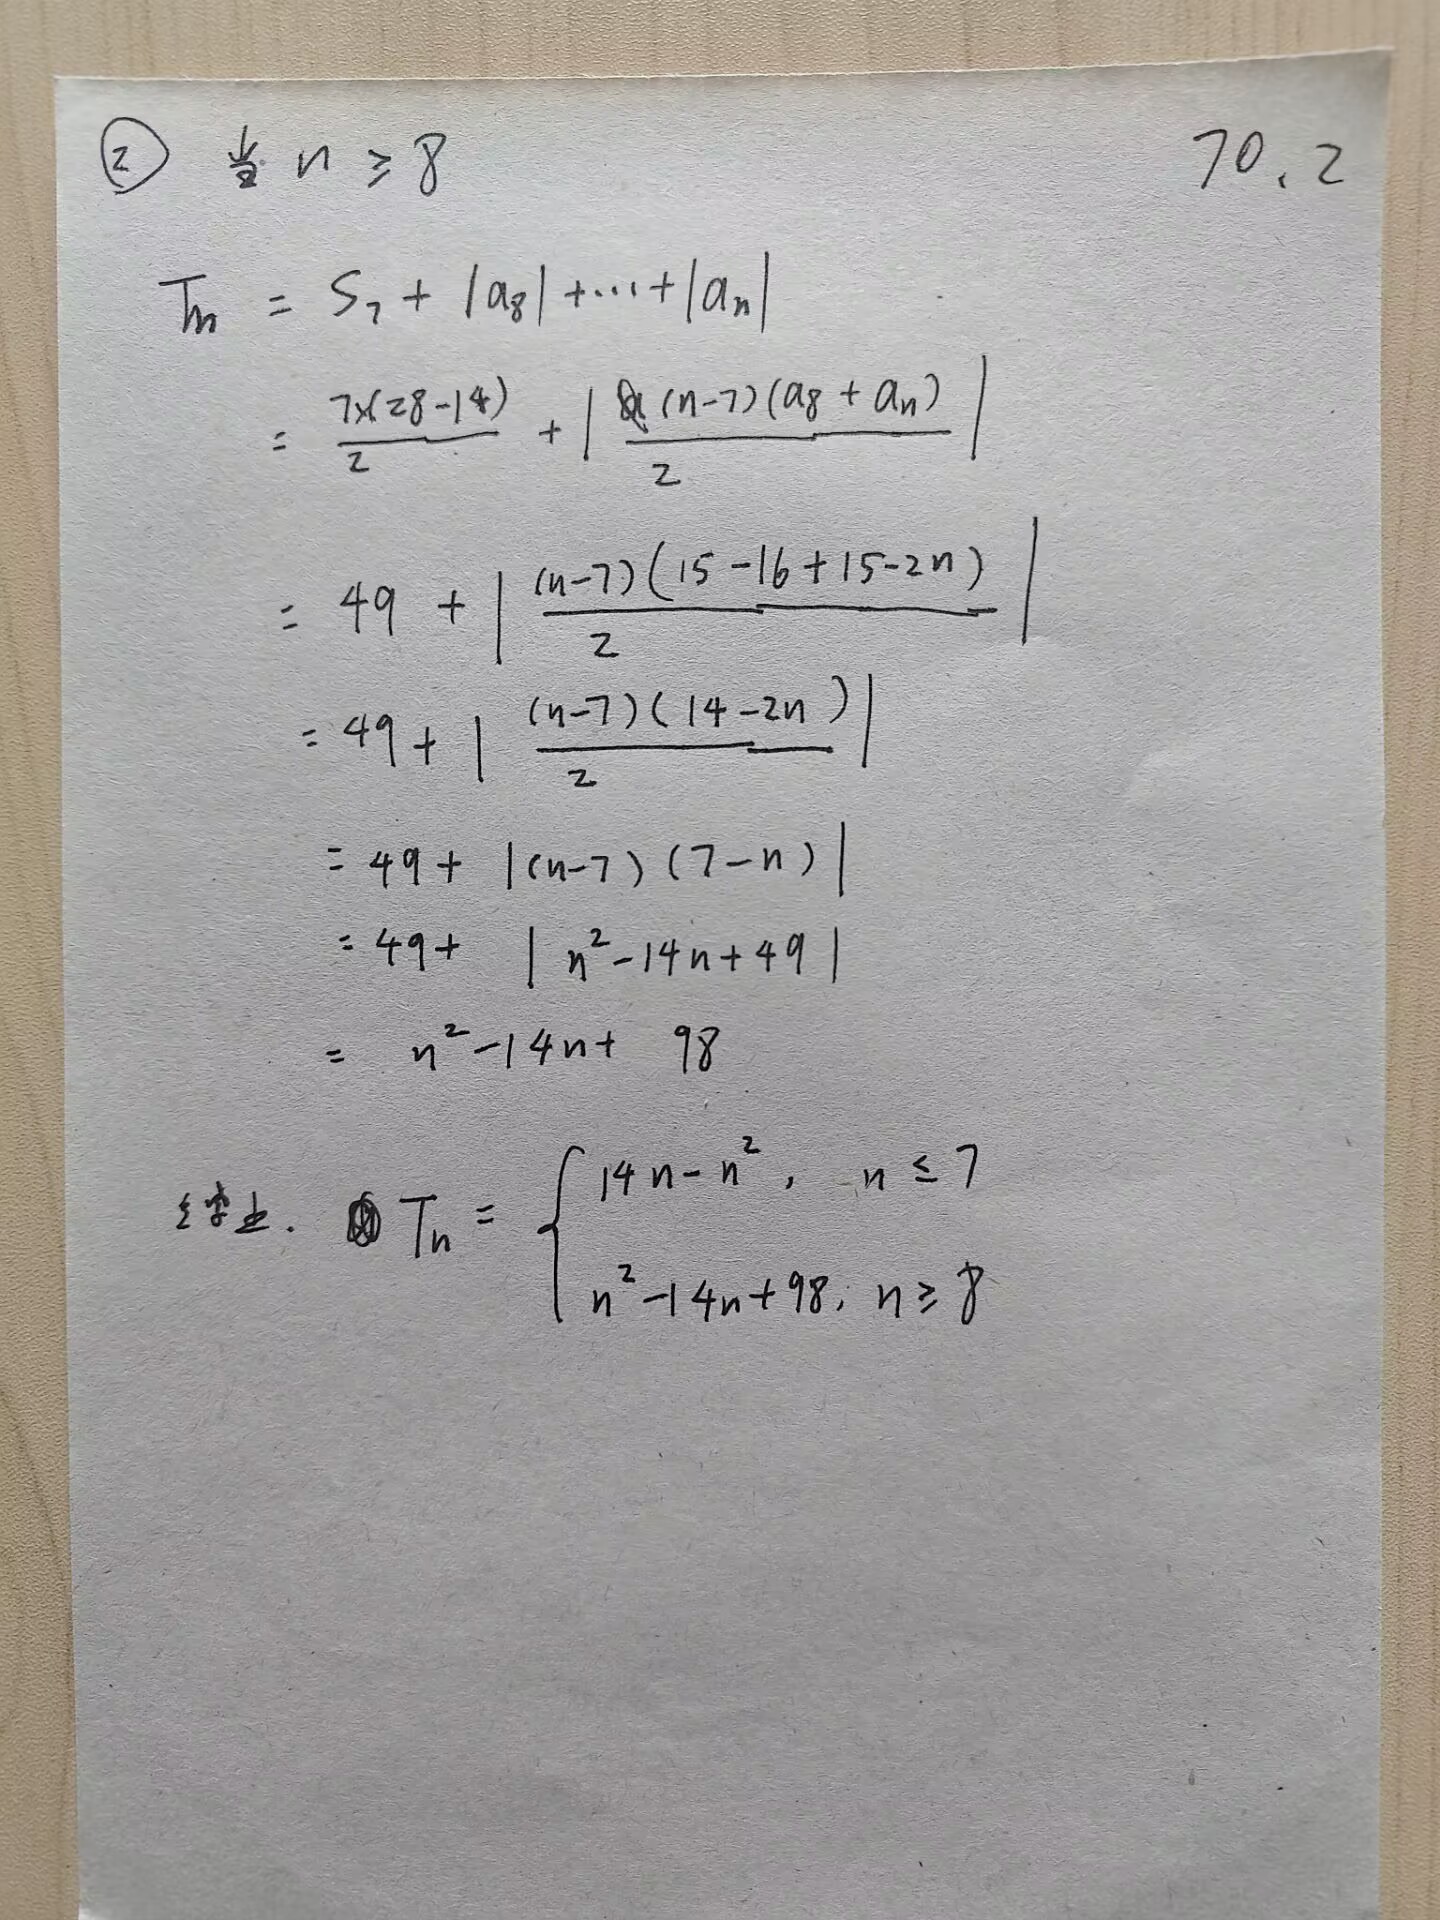 ② 当 n ≥ 8 70.2
Tn = S₇ + |a₈| + ··· + |aₙ|
= 7×(28-14)/2 + |(n-7)(a₈ + aₙ)/2|
= 49 + |(n-7)(15-16+15-2n)/2|
= 49 + |(n-7)(14-2n)/2|
= 49 + |(n-7)(7-n)|
= 49 + |n²-14n+49|
= n²-14n+ 98
综上. Tn = { 14n-n², n ≤ 7
n²-14n+98, n ≥ 8